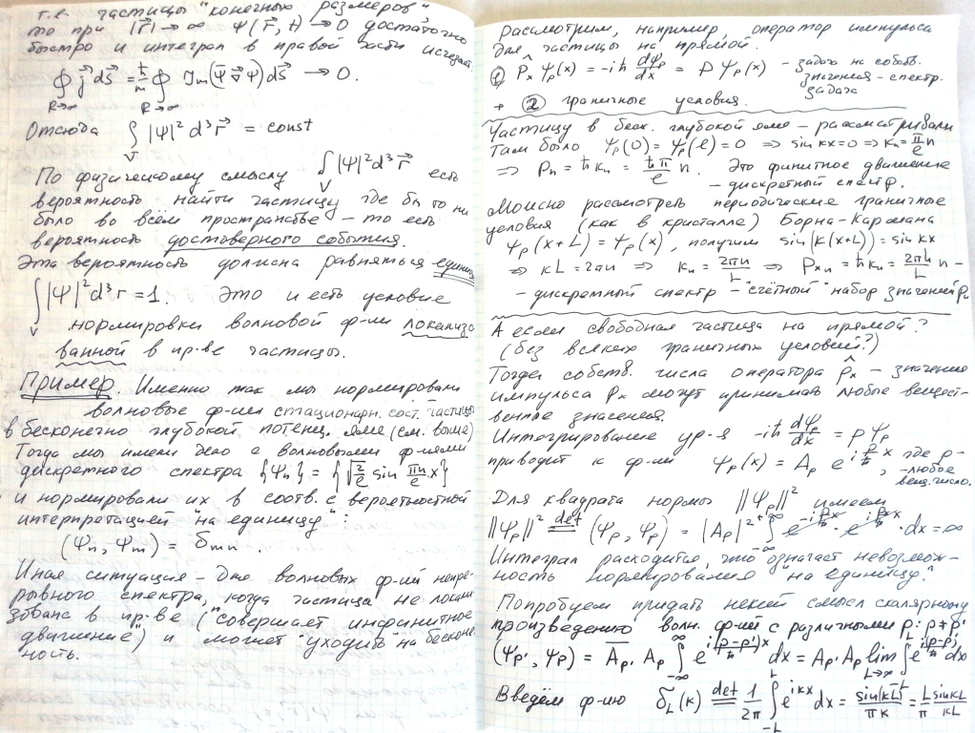 т.е. частицы "конечных размеров"
то при |r⃗|→∞ Ψ(r⃗,t)→0 достаточно
быстро и интеграл в правой части исчезает.
∮_{R→∞} j⃗ds⃗ = ħ/m ∮_{R→∞} Im(Ψ̄∇⃗Ψ)ds⃗ → 0.
Отсюда ∫_V |Ψ|² d³r⃗ = const
По физическому смыслу ∫_V |Ψ|²d³r⃗ есть
вероятность найти частицу где бы то ни
было во всём пространстве – то есть
вероятность достоверного события.
Эта вероятность должна равняться единице
∫_V |Ψ|²d³r = 1. Это и есть условие
нормировки волновой ф-ии локализо
ванной в пр-ве частицы.
Пример. Именно так мы нормировали
волновые ф-ии стационарн. сост. частицы
в бесконечно глубокой потенц. яме (см. выше)
Тогда мы имели дело с волновыми ф-иями
дискретного спектра {Ψn} = {√(2/ℓ) sin (πn/ℓ) x}
и нормировали их в соотв. с вероятностной
интерпретацией "на единицу":
(Ψn, Ψm) = δmn.
Иная ситуация – для волновых ф-ий непре-
рывного спектра, когда частица не локали
зована в пр-ве ("совершает инфинитное
движение") и может "уходить" на бесконеч
ность.
Рассмотрим, например, оператор импульса
для частицы на прямой.
① P̂x Ψp(x) = -iħ dΨp/dx = p Ψp(x) – задача на собств.
значения – спектр.
задача
+ ② граничные условия.
Частицу в беск. глубокой яме – рассматривали
Там было Ψp(0) = Ψp(ℓ) = 0 ⇒ sin kx=0 ⇒ kn = π/ℓ n
⇒ Pn = ħkn = ħπ/ℓ n. Это финитное движение
– дискретный спектр.
Можно рассмотреть периодические граничные
условия (как в кристалле) Борна-Кармана
Ψp(x+L) = Ψp(x), получим sin(k(x+L)) = sin kx
⇒ kL = 2πn ⇒ kn = 2πn/L ⇒ Pxn = ħkn = 2πħ/L n –
– дискретный спектр – "счётный" набор значений Pn
А если свободная частица на прямой?
(без всяких граничных условий?)
Тогда собств. числа оператора p̂x – значение
импульса px могут принимать любое вещест-
венное значения.
Интегрирование ур-я -iħ dΨp/dx = pΨp
приводит к ф-ии Ψp(x) = Ap e^{i p/ħ x}, где p-
-любое
вещ. число.
Для квадрата нормы ||Ψp||² имеем
||Ψp||² def= (Ψp, Ψp) = |Ap|² ∫_{-∞}^{+∞} e^{-i px/ħ} · e^{i px/ħ} · dx = ∞
Интеграл расходится, что означает невозмож-
ность нормирования "на единицу".
Попробуем придать некий смысл скалярному
произведению волн. ф-ий с различными p: p≠p'
(Ψp', Ψp) = Āp' Ap ∫_{-∞}^{∞} e^{i(p-p')x/ħ} dx = Ap' Ap lim_{L→∞} ∫_{-L}^{L} e^{i(p-p')x/ħ} dx
Введём ф-ию δ_L(k) def= 1/2π ∫_{-L}^{L} e^{ikx} dx = sin(kL)/πk = L/π sin kL/kL